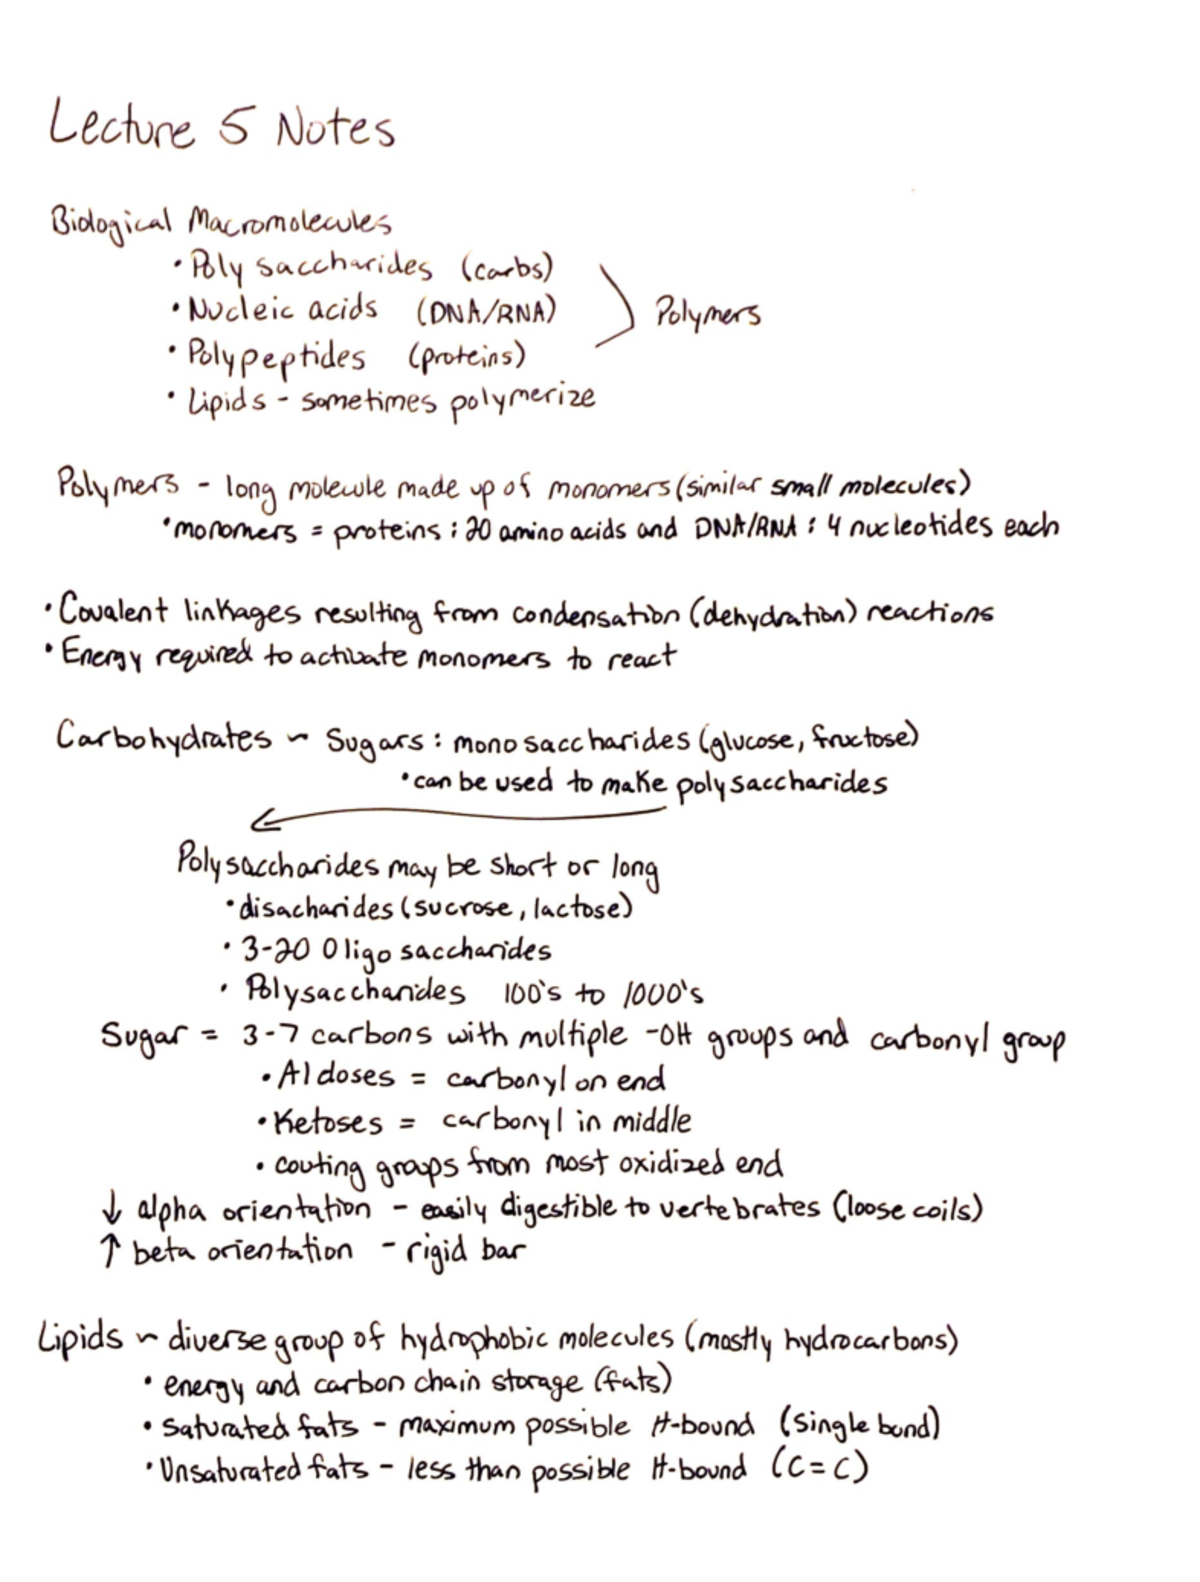 Lecture 5 Notes
Biological Macromolecules
• Polysaccharides (carbs)
• Nucleic acids (DNA/RNA)
Polymers
• Polypeptides (proteins)
• Lipids - sometimes polymerize
Polymers - long molecule made up of monomers (similar small molecules)
• monomers = proteins : 20 amino acids and DNA/RNA : 4 nucleotides each
• Covalent linkages resulting from condensation (dehydration) reactions
• Energy required to activate monomers to react
Carbohydrates ~ Sugars : monosaccharides (glucose, fructose)
• can be used to make polysaccharides
Polysaccharides may be short or long
• disacharides (sucrose, lactose)
• 3-20 Oligosaccharides
• Polysaccharides 100's to 1000's
Sugar = 3-7 carbons with multiple -OH groups and carbonyl group
• Aldoses = carbonyl on end
• Ketoses = carbonyl in middle
• couting groups from most oxidized end
↓ alpha orientation - easily digestible to vertebrates (loose coils)
↑ beta orientation - rigid bar
Lipids ~ diverse group of hydrophobic molecules (mostly hydrocarbons)
• energy and carbon chain storage (fats)
• Saturated fats - maximum possible H-bound (Single bond)
• Unsaturated fats - less than possible H-bound (C=C)